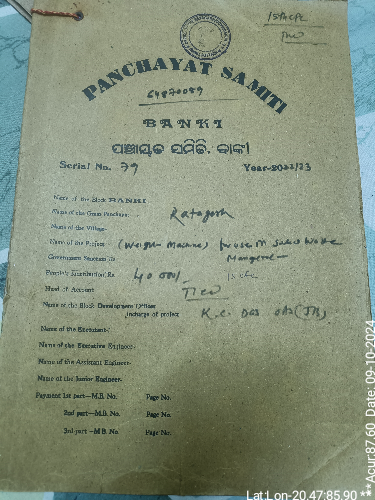 15th CFC
Tied
PANCHAYAT SAMITI
64870089
BANKI
ପଞ୍ଚାୟତ ସମିତି, ବାଙ୍କୀ
Serial No. 79 Year-2022/23
Name of the Block BANKI
Name of the Gram Panchayat
Name of the Village-
Name of the Project (Weight Machine) for use in Solid Waste
Management
Government Sanction Rs
People's Contribution Rs 40,000/
Head of Account Tied
Name of the Block Development Officer
Incharge of project K.C. DAS
Name of the Executant-
Name of the Executive Engineer-
Name of the Assistant Engineer-
Name of the Junior Engineer-
Payment 1st part-M.B. No. Page No.
2nd part-M.B. No. Page No.
3rd part-M.B. No. Page No.
Lat:Lon-20.47:85.90 **
Acur:87.60, Date: 09-10-2024